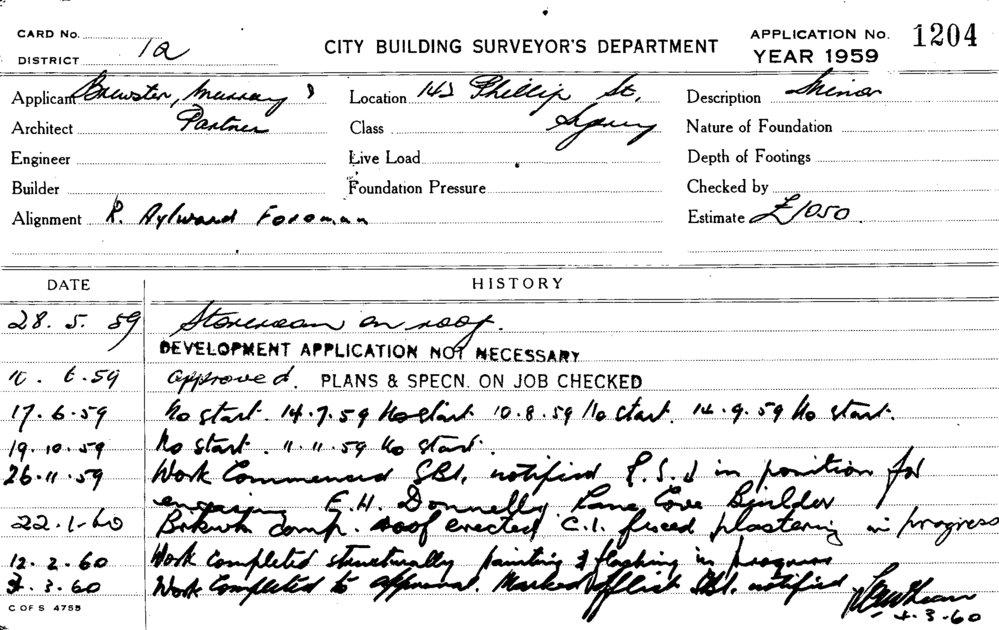 CARD No.
DISTRICT 1a
CITY BUILDING SURVEYOR'S DEPARTMENT
APPLICATION No. 1204
YEAR 1959
Applicant Brewster, Murray &
Location 143 Phillip St,
Description Minor
Architect Partner
Class Sydney
Nature of Foundation
Engineer
Live Load
Depth of Footings
Builder
Foundation Pressure
Checked by
Alignment R. Aylward Foreman
Estimate £1050.
DATE
HISTORY
28. 5. 59 Storeroom on roof.
DEVELOPMENT APPLICATION NOT NECESSARY
6.59 Approved. PLANS & SPECN. ON JOB CHECKED
17.6.59 No start. 14.7.59 No start 10.8.59 No start. 14.9.59 No start.
19.10.59 No start. 11.11.59 No start.
26.11.59 Work Commenced notified in position for
E.H. Donnelly Lane Cove Builder
22.1.60 Brkwk comp. roof erected C.I. fixed plastering in progress
12.2.60 Work Completed structurally painting & flashing in progress
3.60 Work Completed to approval. Marked off list notified
3.60
C OF S 4755